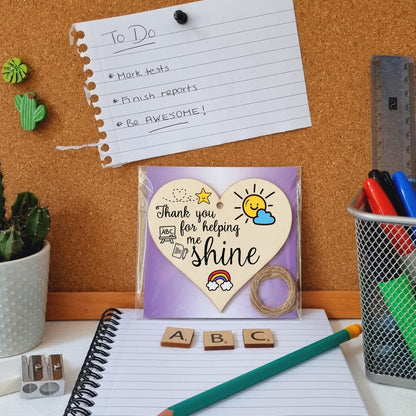 To Do
• Mark tests
• Finish reports
• Be AWESOME!
Thank you
for helping
me
shine
ABC
A B C